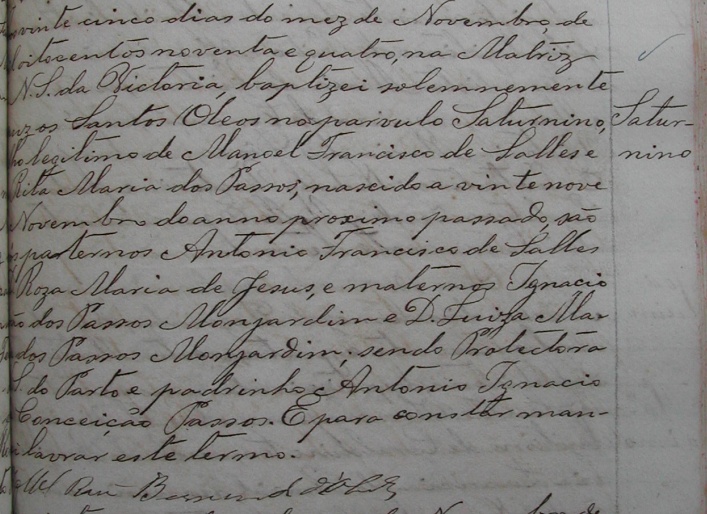 vinte cinco dias do mez de Novembro, de
oitocentos noventa e quatro, na Matriz
N.S. da Victoria, baptizei solemnemente
puz os Santos Oleos no parvulo Saturnino,
Satur-
nino
legitimo de Manoel Francisco de Salles e
Rita Maria dos Passos, nascido a vinte nove
Novembro do anno proximo passado, são
paternos Antonio Francisco de Salles
Roza Maria de Jesus, e maternos Ignacio
dos Passos Monjardim e D. Luiza Mar
dos Passos Monjardim; sendo Protectora
S. do Parto e padrinho Antonio Ignacio
Conceição Passos. E para constar man-
lavrar este termo.